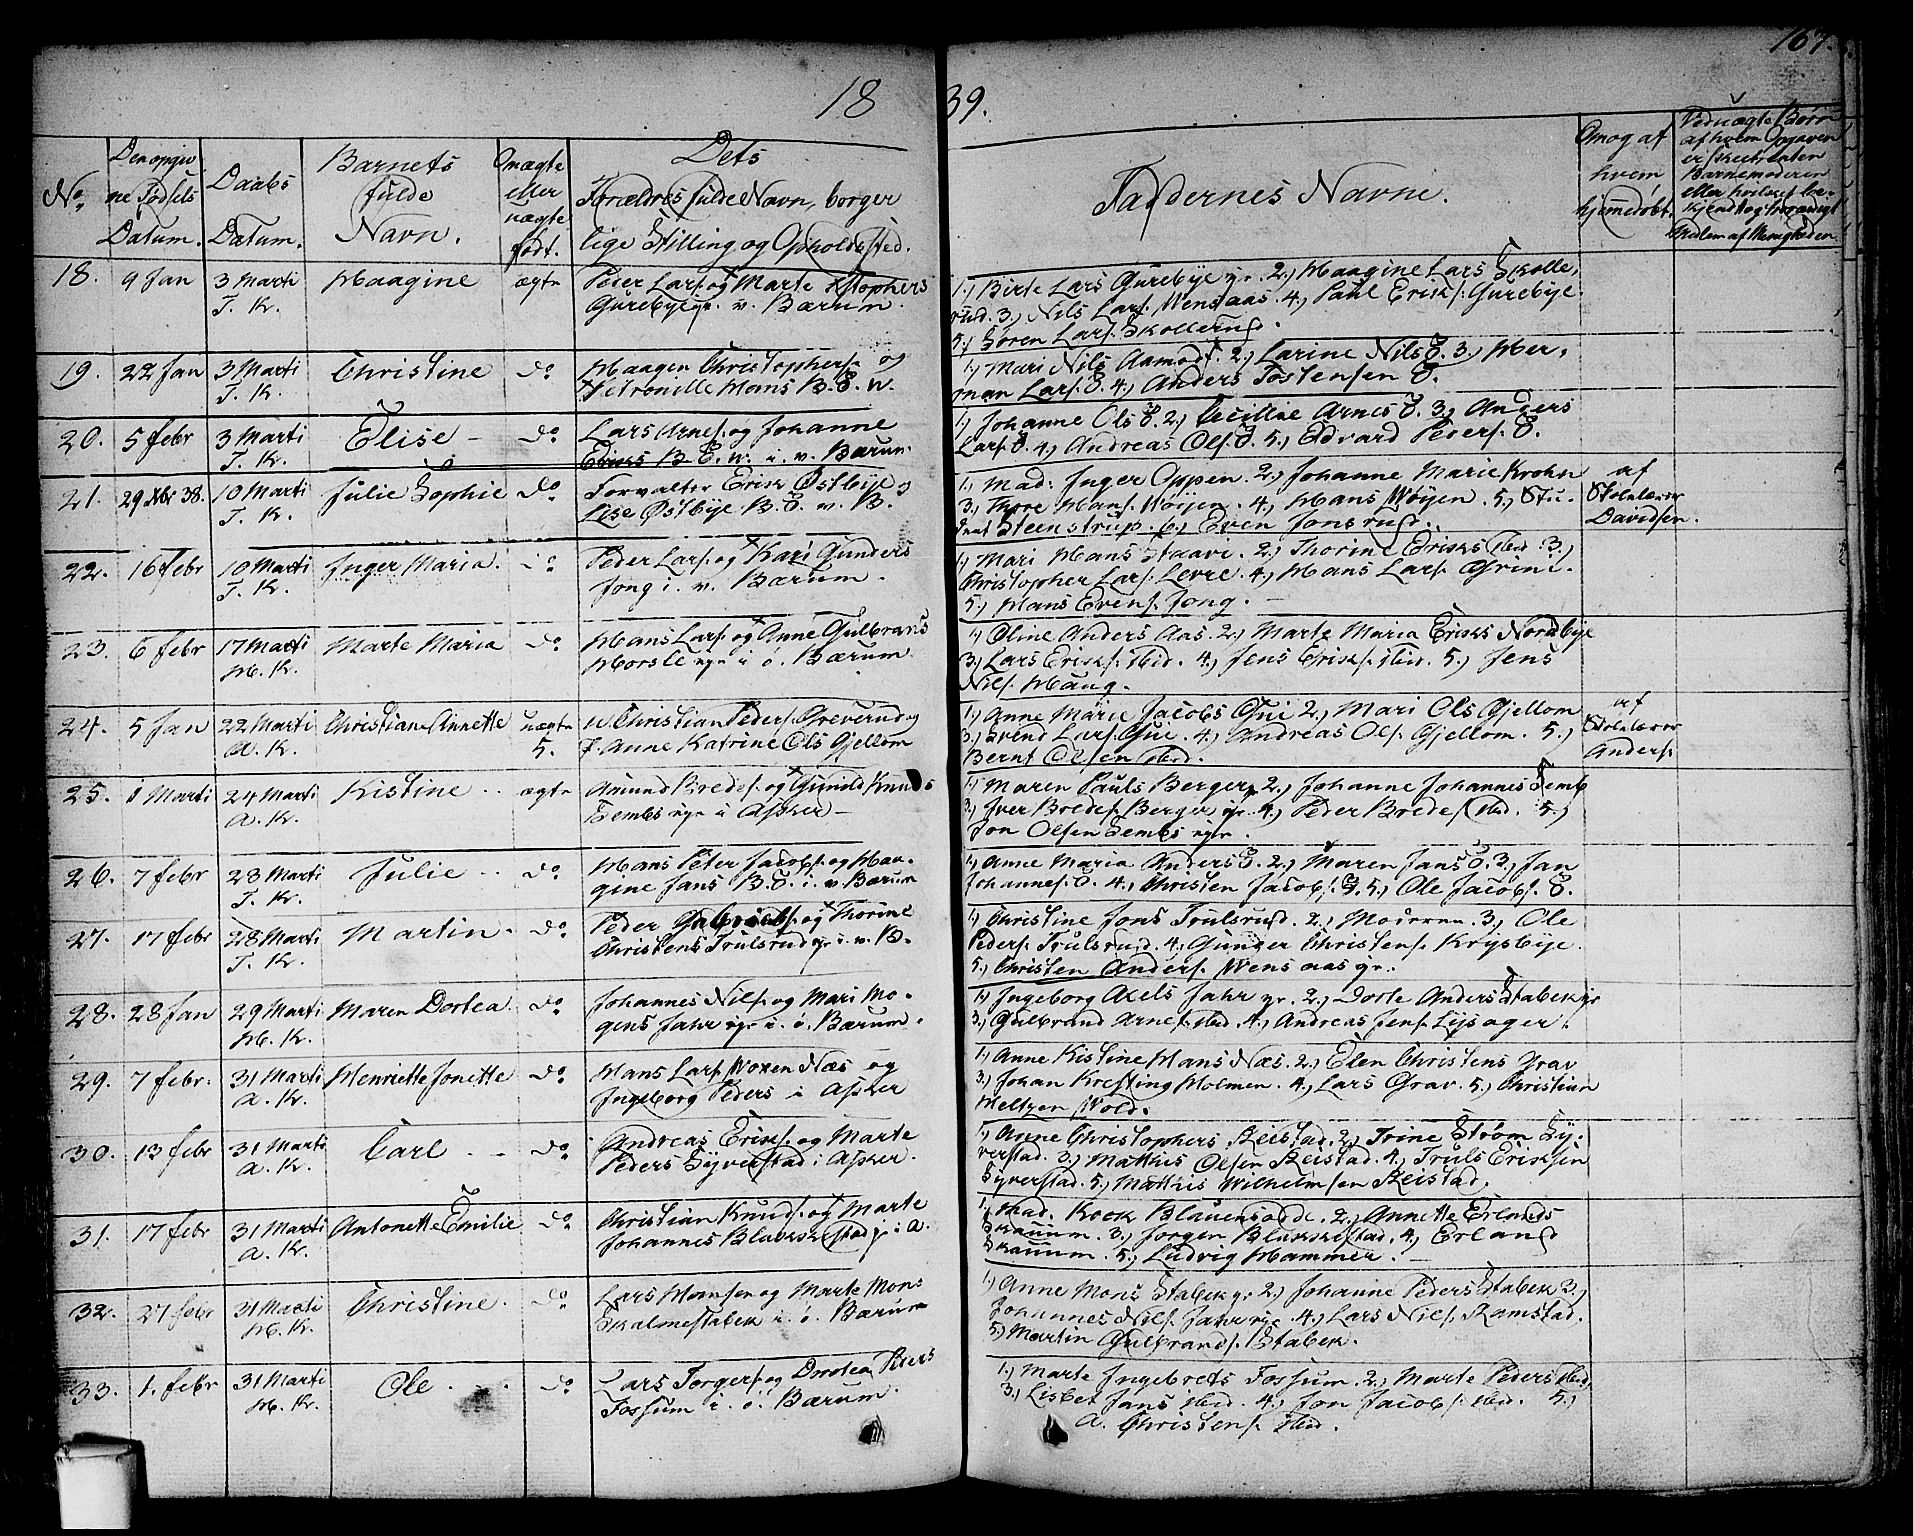 167.
18 39.
No.
Den opgiv
ne Fødsels
Datum.
Daabs
Datum.
Barnets
fulde
Navn.
Om ægte
eller
uægte
født.
Dets
Forældres fulde Navn, borger
lige Stilling og Opholdssted.
Faddernes Navne.
Om og af
hvem
hjemedøbt.
Ved uægte Børn
af hvem Opgaven
er skeet enten
Barnemoderen
eller hvilket be-
kjendt og troværdigt
Medlem af Menigheden
18. 9 Jan 3 Marti Maagine ægte Peder Lars. og Marte Xstophers
T. K. Gurebye gr. v. Bærum.
1.) Birte Lars Gurebye gr. 2.) Maagine Lars Skolle,
rud. 3.) Nils Lars. Wensaas. 4.) Paul Eriks. Gurebye
5.) Søren Lars. Skollerud.
19. 22 Jan 3 Marti Christine do Haagen Christophers. og
T. K. Petronille Hans B. V. W.
1.) Mari Nils Aamodt. 2.) Larine Nils V. 3.) Her,
man Lars. V. 4.) Anders Tostensen V.
20. 5 febr 3 Marti Elise - do Lars Arnes. og Johanne
T. K. Eriks B. V. W. i. v. Bærum.
1.) Johanne Ols V. 2.) Cecillie Arnes V. 3.) Anders
Lars. V. 4.) Andreas Ols. V. 5.) Edvard Peders. V.
21. 29 Xbr 38. 10 Marti Julie Sophie do Forvalter Erik Østbye og
T. K. Lise Østbye B. V. v. B.
1.) Mad: Inger Oppen. 2.) Johanne Marie Krohn
3.) Thore Hans. Wøyen. 4.) Hans Wøyen. 5.) Stu-
dent Steenstrup. 6.) Even Jonsrud.
af
Skolelærer
Davidsen.
22. 16 febr 10 Marti Inger Maria. do Peder Lars. og Kari Gunders
T. K. Jong i. v. Bærum.
1.) Mari Hans Haave. 2.) Thorine Eriks ibid 3.)
Christopher Lars. Levre. 4.) Hans Lars. Grini.
5.) Hans Evens. Jong. -
23. 6 febr 17 Marti Marte Maria do Hans Lars. og Anne Gulbrands
H. K. Horsle eyr i ø. Bærum.
1.) Oline Anders Aas. 2.) Marte Maria Eriks Nordbye
3.) Lars Eriks. ibid. 4.) Jens Eriks. ibid. 5.) Jens
Nils. Haug.
24. 5 Jan 22 Marti Christiane Annette uægte U Christian Peders. Greverud og
A. K. 5. F. Anne Katrine Ols Gjellom
1.) Anne Marie Jacobs Gui 2.) Mari Ols Gjellom
3.) Svend Lars. Gui. 4.) Andreas Ols. Gjellom. 5.)
Bernt Olsen ibid.
af
Skolelærer
Anders.
25. 1 Marti 24 Marti Kistine . . ægte Amund Bredes. og Gunild Knuds
A. K. Sembs eyr i Asker -
1.) Maren Pauls Berger, 2.) Johanne Johannes Semb
3.) Iver Bredes. Berger gr. 4.) Peder Bredes. ibid. 5.)
Jon Olsen Sembs eyr.
26. 7 febr 28 Marti Julie . . do. Hans Peter Jacobs. og Maa-
T. K. gine Jans B. V. i. v. Bærum
1.) Anne Maria Anders V. 2.) Maren Jans V. 3.) Jan
Johannes. V. 4.) Christen Jacobs. V. 5.) Ole Jacobs. V.
27. 17 febr 28 Marti Martin. do. Peder Gulbrands. og Thorine
T. K. Christens Trulsrud gr i. v. B.
1.) Christine Jons Trulsrud. 2.) Moderen. 3.) Ole
Peders. Trulsrud. 4.) Gunder Christens. Krysbye.
5.) Christen Anders. Wensaas gr.
28. 28 Jan 29 Marti Maren Dortea. do Johannes Nils. og Mari Mo-
H. K. gens Jahr eyr i. ø. Bærum.
1.) Ingeborg Axels Jahr gr. 2.) Dorte Anders Stabek gr
3.) Gulbrand Arnes. ibid. 4.) Andreas Jens. Lysager.
29. 7 febr. 31 Marti Henriette Jonette do. Hans Lars. Woxen Næs og
A. K. Ingeborg Peders i Asker
1.) Anne Kistine Hans Næs. 2.) Elen Christens Grav
3.) Johan Krefting Holmen. 4.) Lars Grav. 5.) Christian
Meltzen Wold.
30. 13 febr 31 Marti Carl . . do. Andreas Eriks. og Marte
A. K. Peders Syverstad i Asker.
1.) Anne Christophers Reistad. 2.) Trine Strøm Sy-
verstad. 3.) Mathis Olsen Reistad. 4.) Truls Eriksen
Syverstad. 5.) Mathis Wilhelmsen Reistad.
31. 17 febr 31 Marti Antonette Emilie do. Christian Knuds. og Marte
A. K. Johannes Blakkestad j. i A.
1.) Mad. Kook Blauensodde. 2.) Annette Erlands
Skauum. 3.) Jørgen Blakkestad. 4.) Erland
Skauum. 5.) Ludvig Hammer. -
32. 27 febr 31 Marti Christine. do. Lars Hansen og Marte Mons
H. K. Skalmestabek i. ø. Bærum
1.) Anne Mons Stabek gr 2.) Johanne Peders Stabek 3.)
Johannes Nils. Jahr eyr. 4.) Lars Nils. Ramstad.
5.) Martin Gulbrands. Stabek.
33. 1. febr 31 Marti Ole . . do Lars Torgers. og Dortea Peders
H. K. Fossum i. ø. Bærum.
1.) Marte Ingebrets Fossum. 2.) Marte Peders ibid,
3.) Lisbet Jans ibid. 4.) Jon Jacobs. ibid. 5.)
A. Christens. ibid.